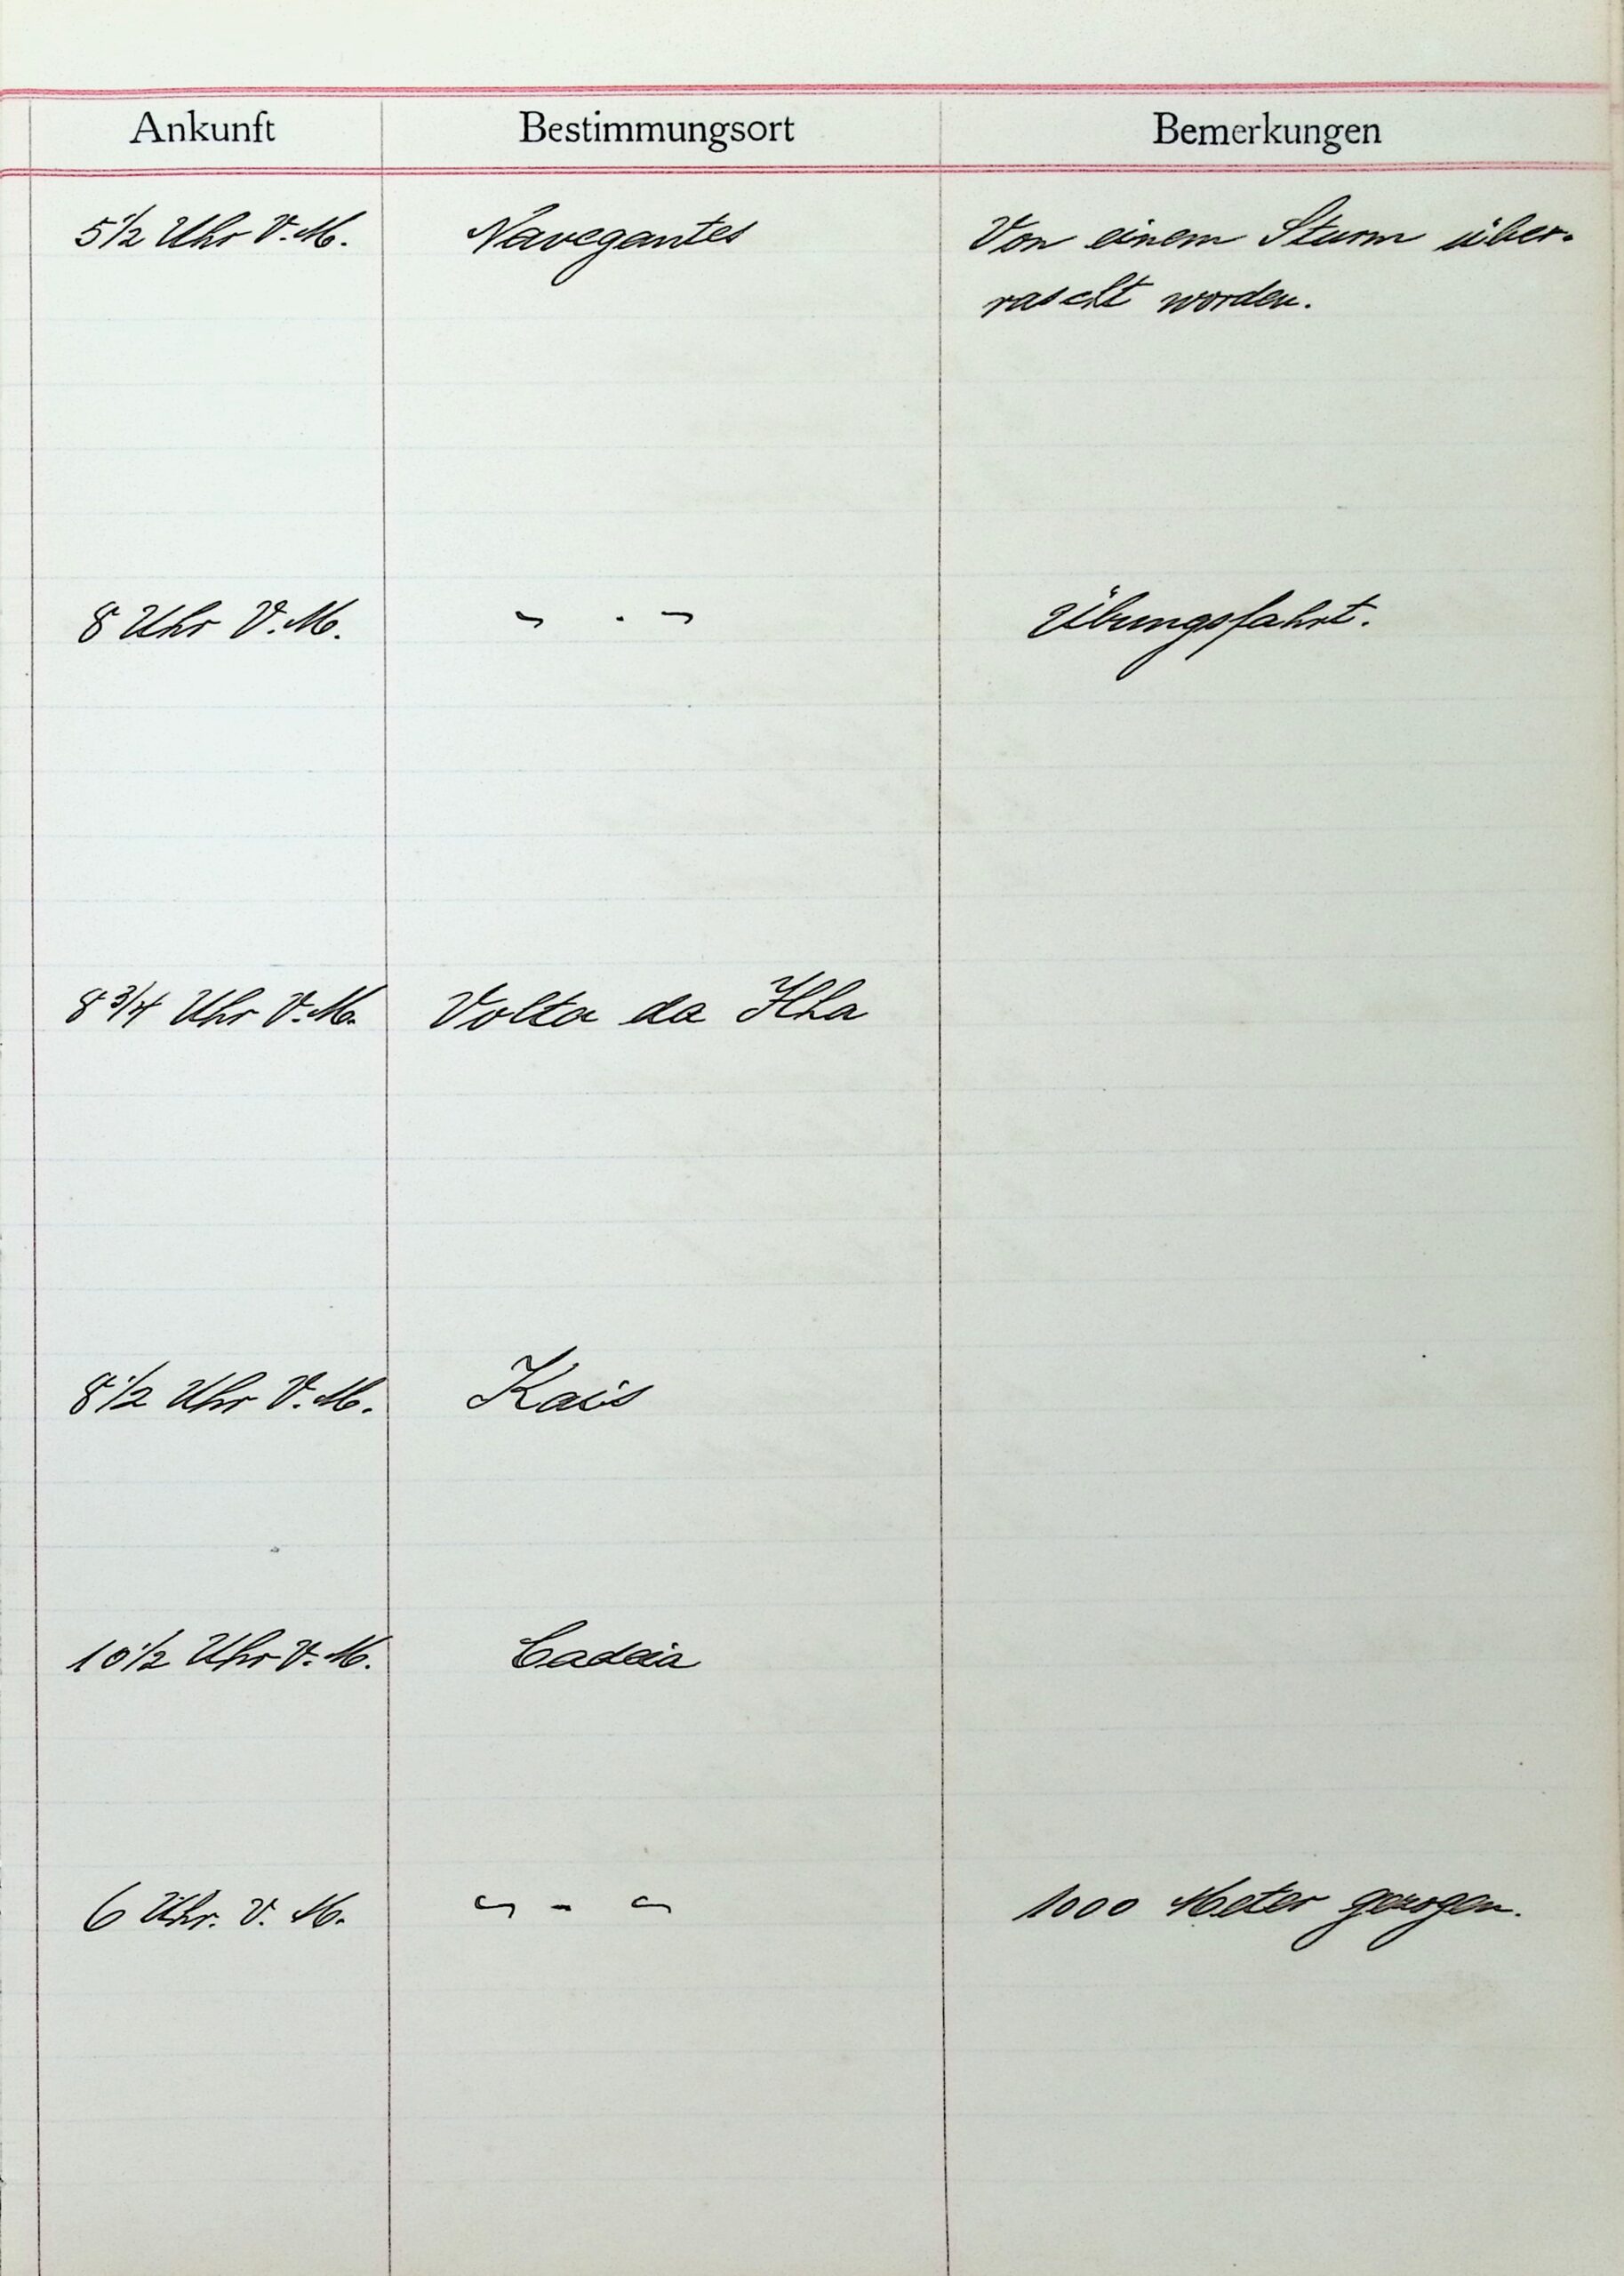 Ankunft Bestimmungsort Bemerkungen
5 1/2 Uhr V.M. Navegantes Von einem Sturm über-
rascht worden.
8 Uhr V.M. " - " Übungsfahrt.
8 3/4 Uhr V.M. Volta da Ilha
8 1/2 Uhr V.M. Kais
10 1/2 Uhr V.M. Cadeia
6 Uhr. V.M. " - " 1000 Meter gezogen.